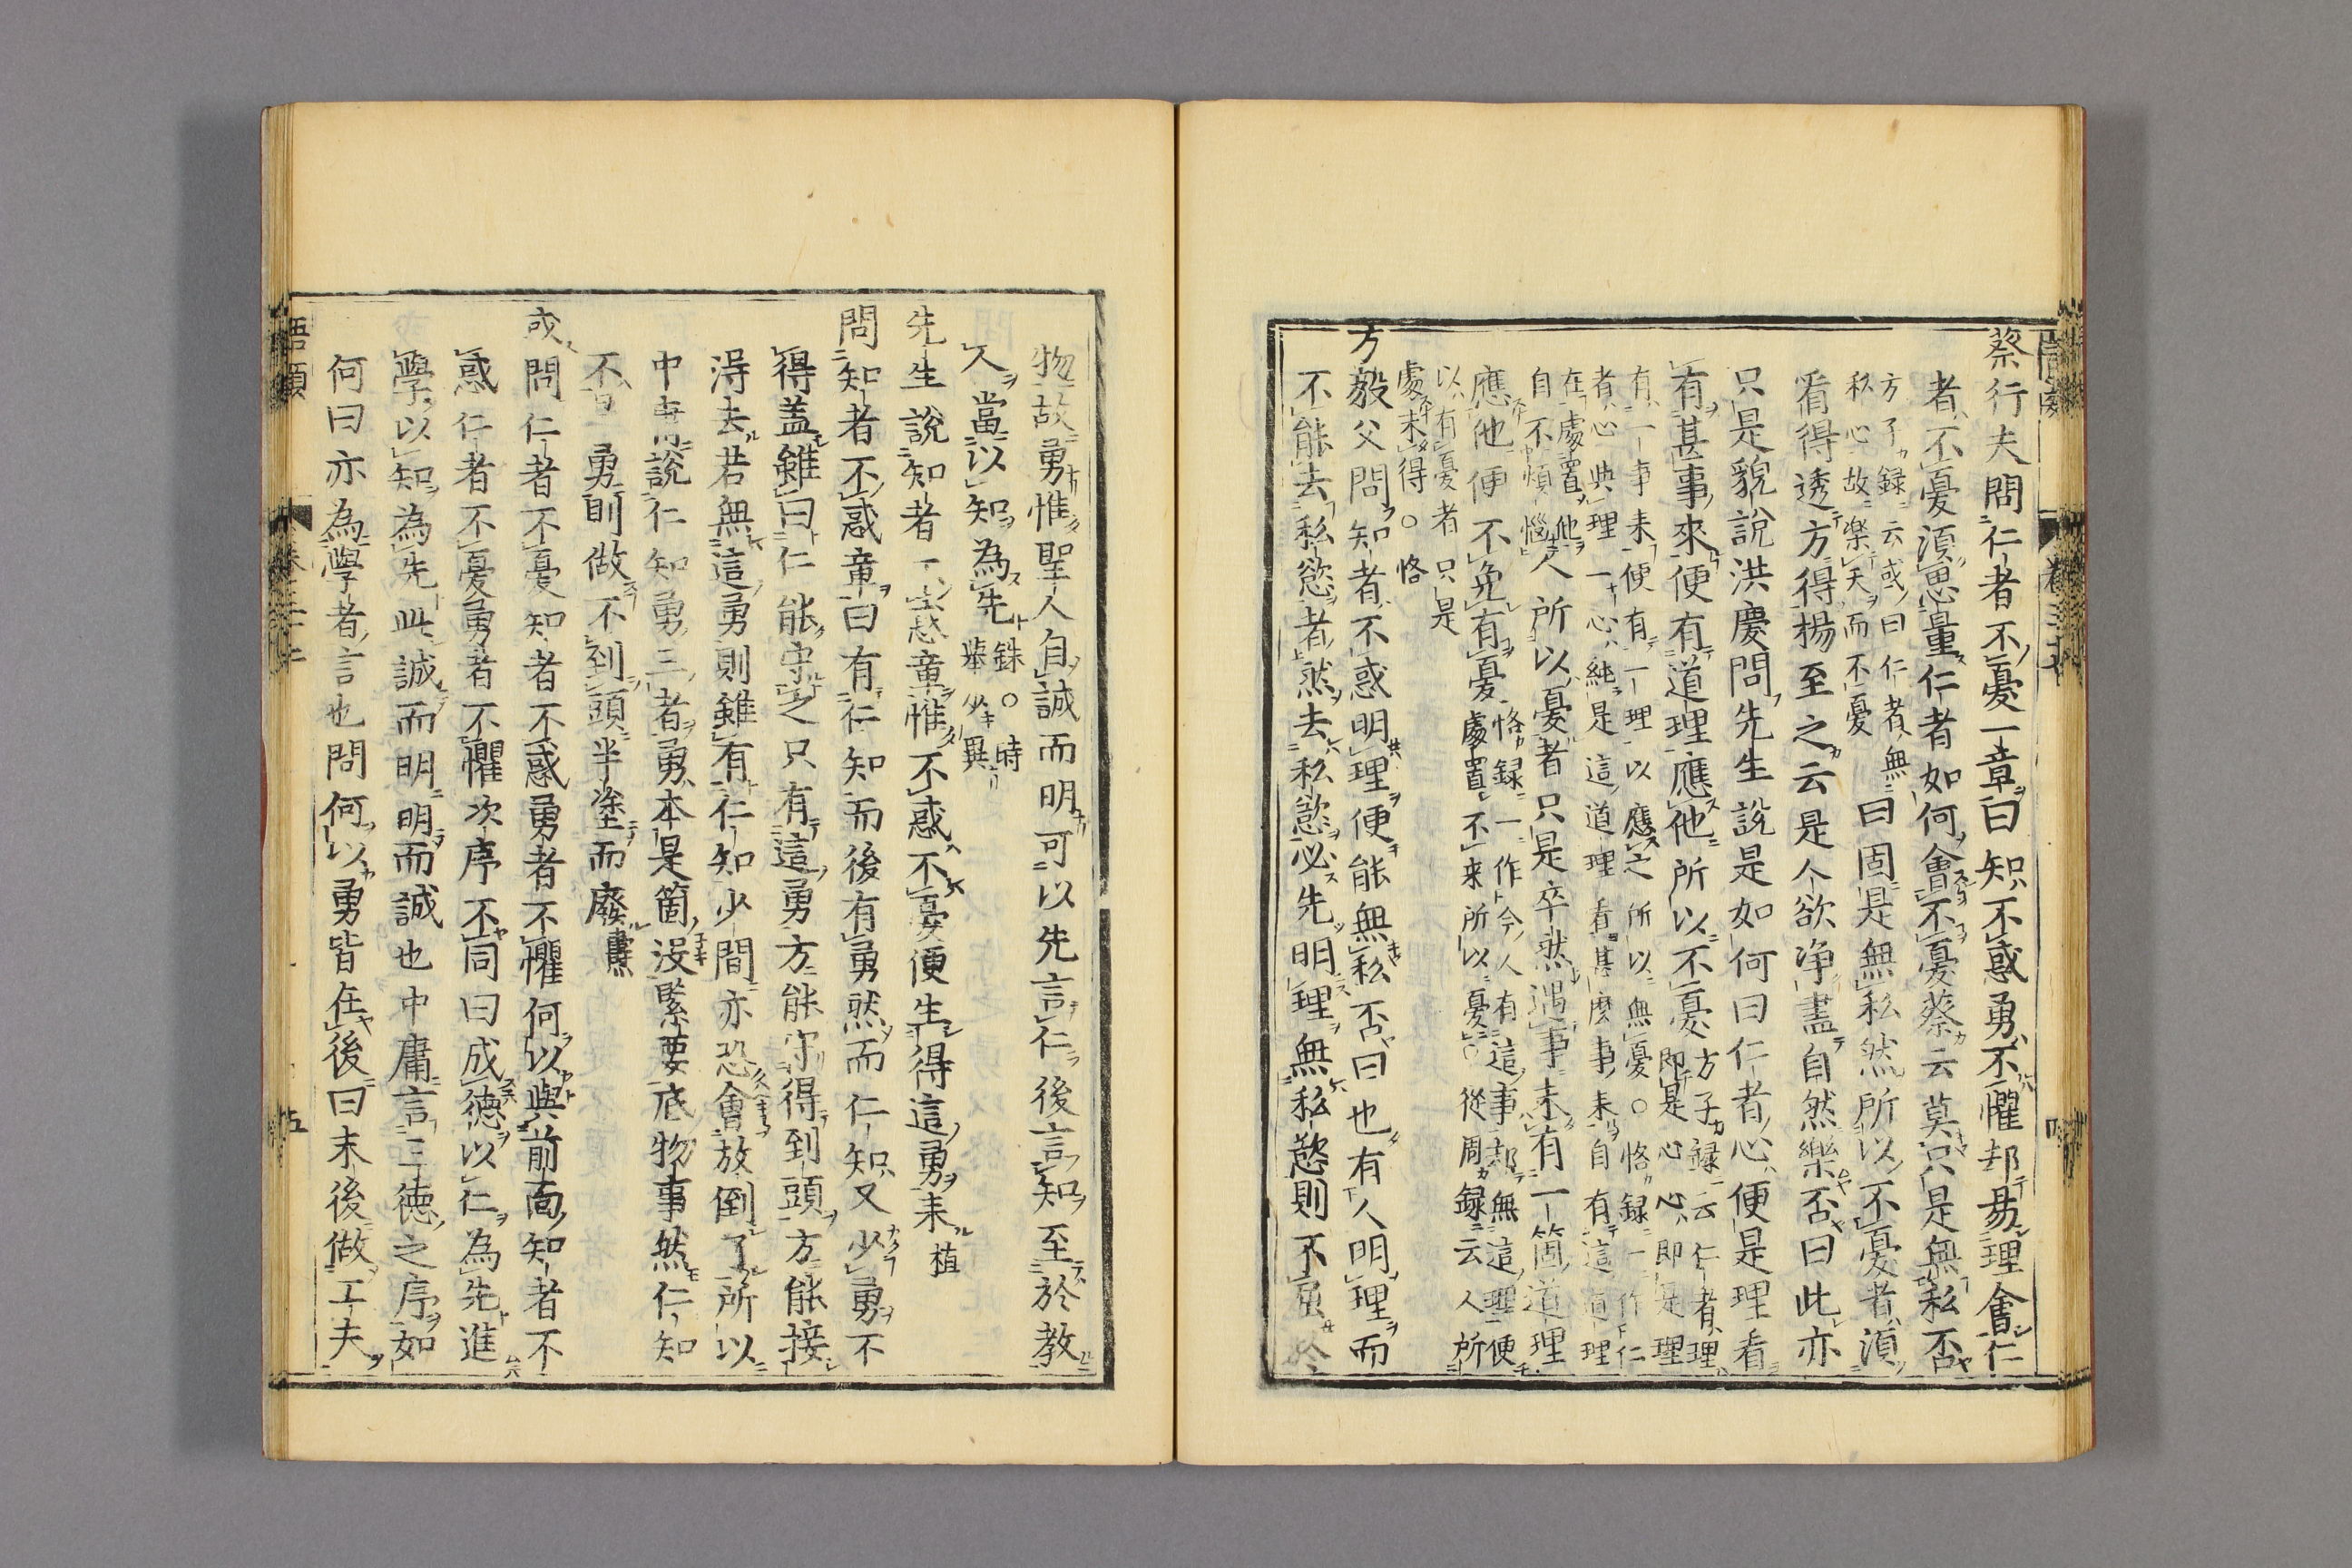 蔡行夫問仁者不憂一章曰知不惑勇不懼却易理會仁
者不憂須思量仁者如何會不憂蔡云莫只是無私否
方子録云或曰仁者無
私心故楽天而不憂
曰固是無私然所以不憂者須
看得透方得楊至之云是人欲浄盡自然樂否曰此亦
只是貌說洪慶問先生說是如何曰仁者心便是理看
有甚事來便有道理應他所以不憂
方子録云仁者理
即是心心即是理
有一事来便有一理以應之所以無憂○恪録一作仁
者心與理一心純是這道理看甚麼事来自有這道理
在處置他
自不煩惱
人所以憂者只是卒然遇事未有一箇道理
應他便不免有憂
恪録一作今人有這事却無這理便
處置不来所以憂○從周録云人所
以有憂者只是
處未得○恪
方毅父問知者不惑明理便能無私否曰也有人明理而
不能去私慾者然去私慾必先明理無私慾則不屈於
物故勇惟聖人自誠而明可以先言仁後言知至於教
人當以知為先
銖○時
舉少異
先生說知者不惑章惟不惑不憂便生得這勇来植
問知者不惑章曰有仁知而後有勇然而仁知又少勇不
得盖雖曰仁能守之只有這勇方能守得到頭方能接
淂去若無這勇則雖有仁知少間亦恐會放倒了所以
中庸說仁知勇三者勇本是箇沒緊要底物事然仁知
不是勇則做不到頭半塗而廢燾
或問仁者不憂知者不惑勇者不懼何以與前面知者不
惑仁者不憂勇者不懼次序不同曰成徳以仁為先進
學以知為先此誠而明明而誠也中庸言三徳之序如
何曰亦為學者言也問何以勇皆在後曰末後做工夫